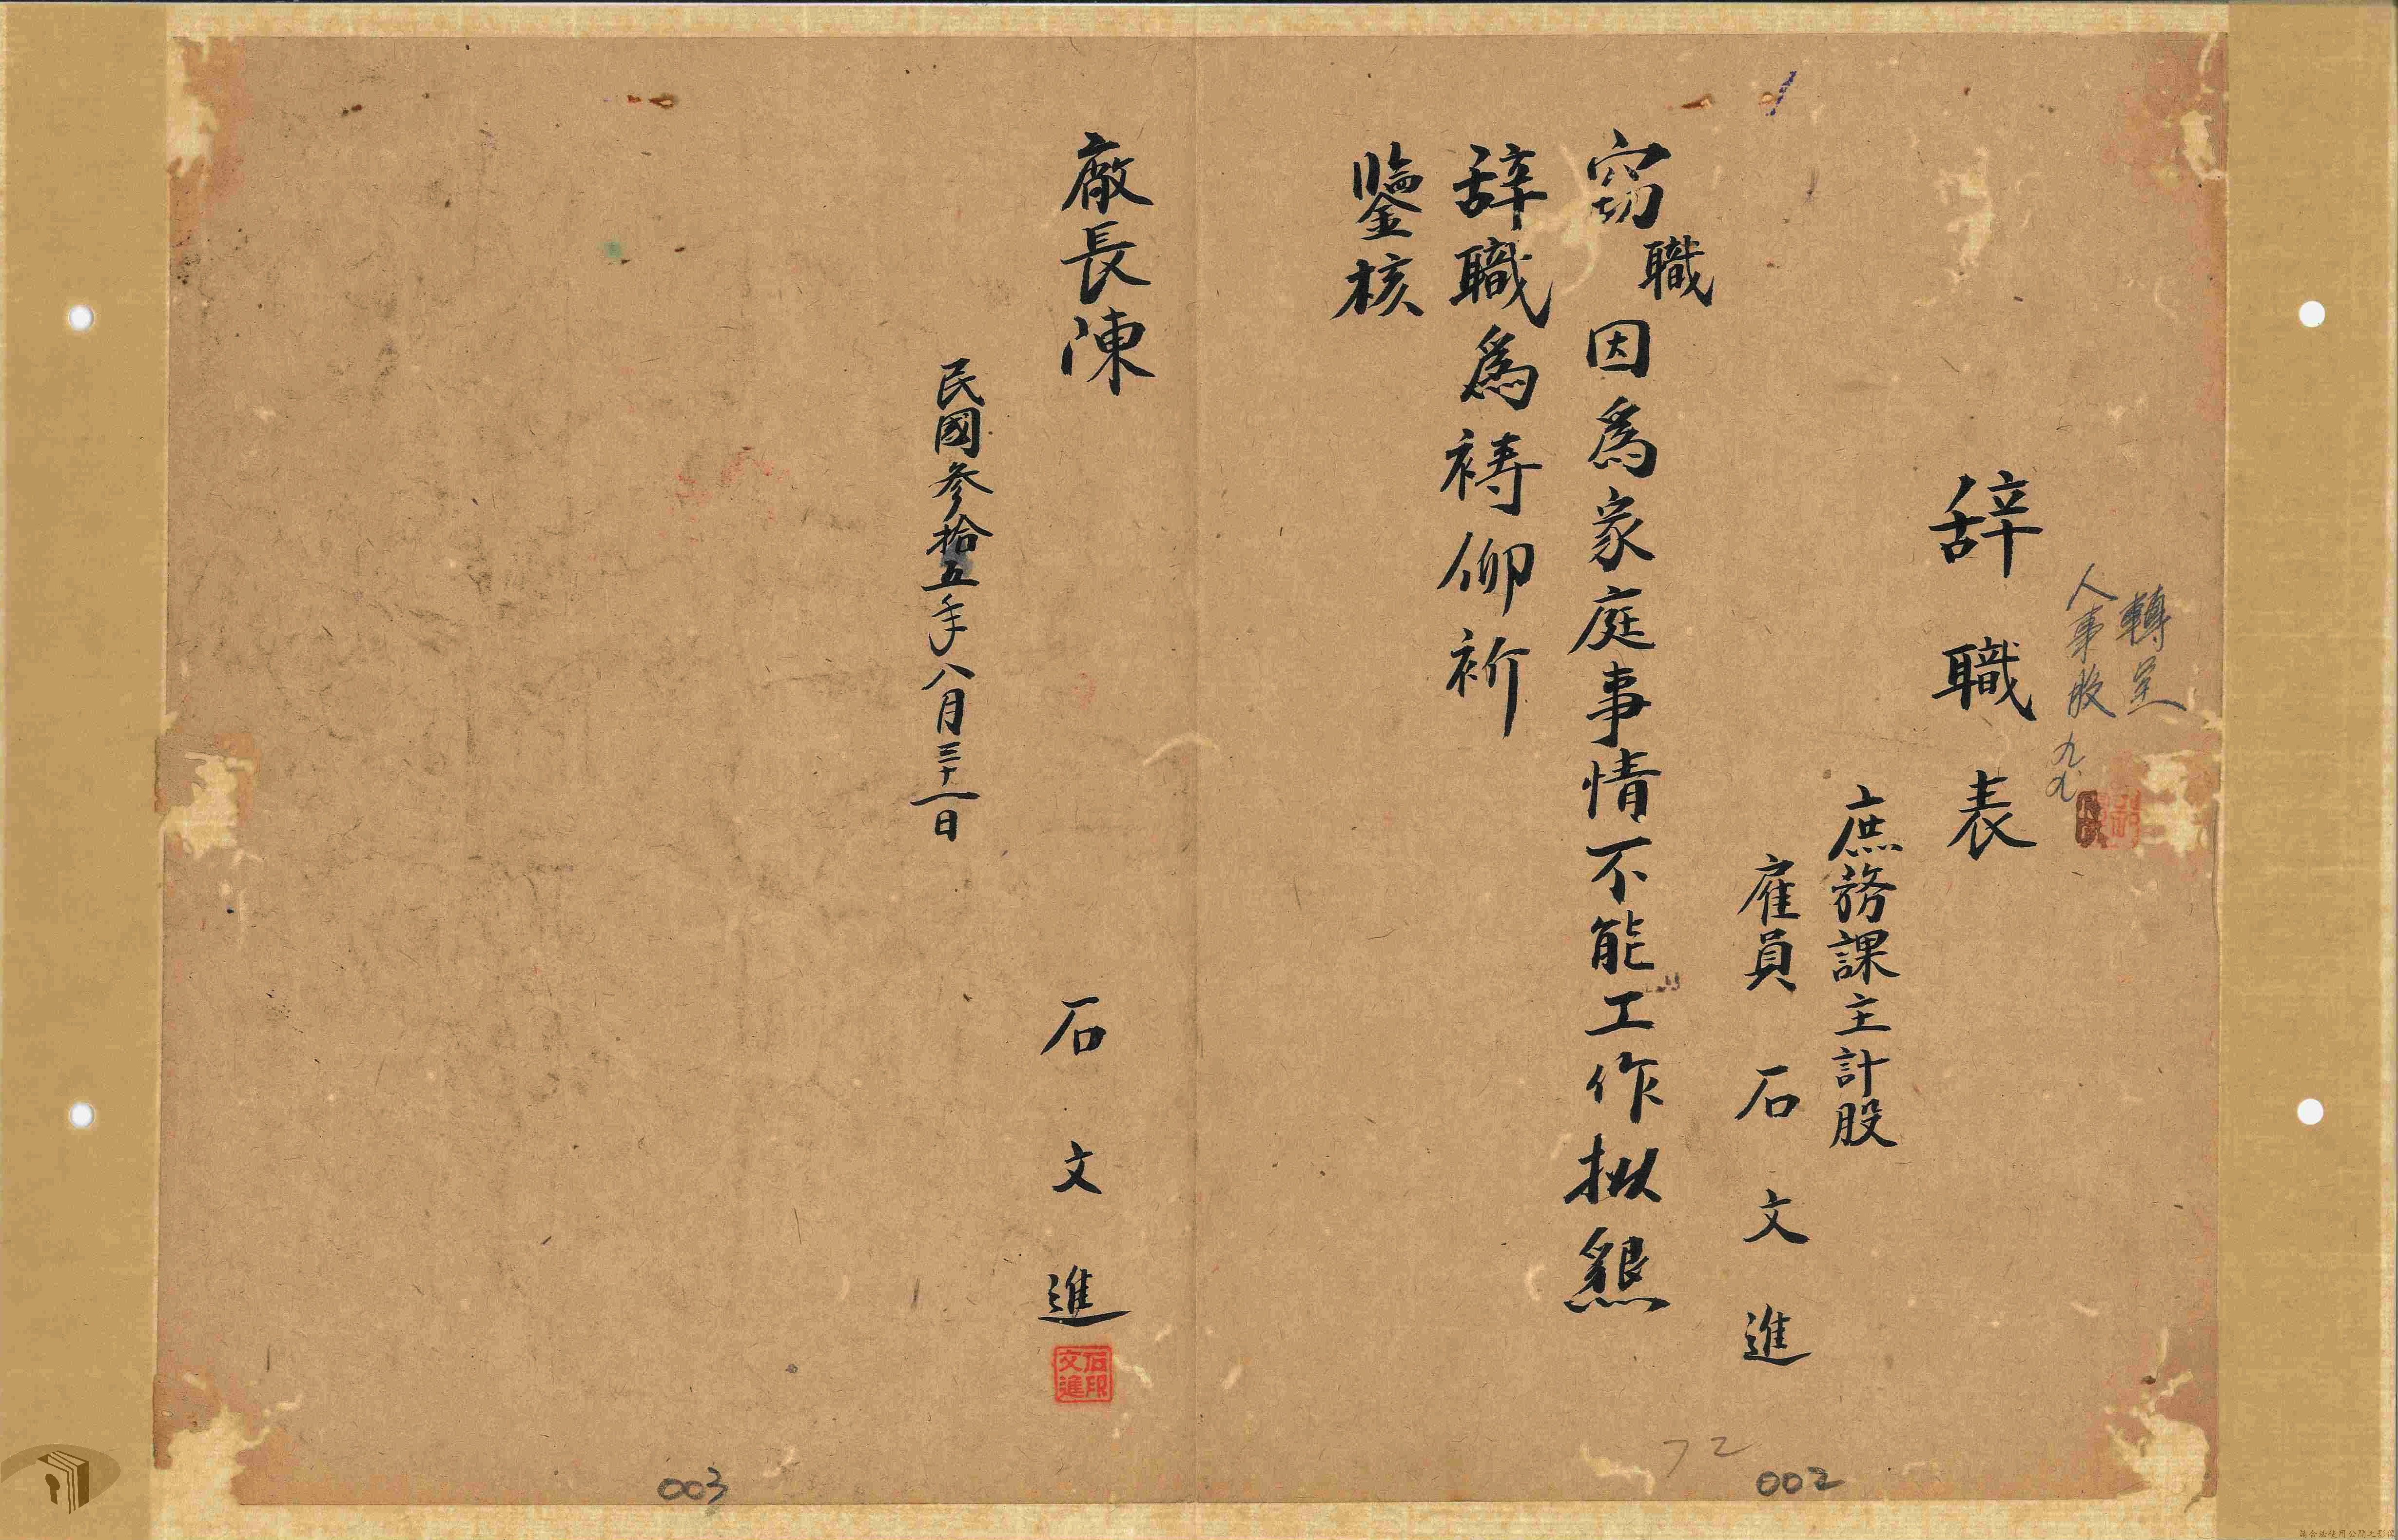 轉呈
人事股
辞職表
庶務課主計股
雇員 石文進
窃職因為家庭事情不能工作拟懇
辞職為禱仰祈
鑒核
廠長陳
石文進
石印文進
民國參拾五年八月三十一日
72
002
003
請合法使用公開之影像